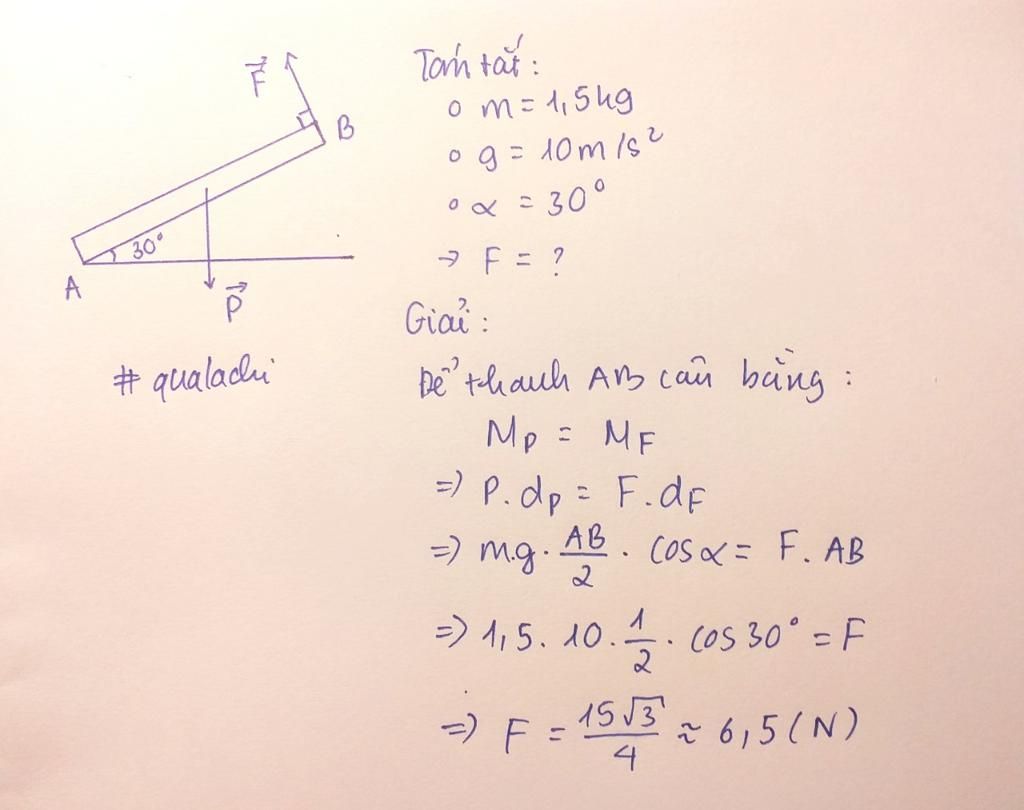 F⃗
B
30°
A
P⃗
# qualachi
Tóm tắt:
o m = 1,5kg
o g = 10m/s²
o α = 30°
→ F = ?
Giải:
Để thanh AB cân bằng:
M_P = M_F
=> P.d_P = F.d_F
=> m.g. AB/2 . cosα = F. AB
=> 1,5. 10. 1/2 . cos30° = F
=> F = 15√3/4 ≈ 6,5 (N)